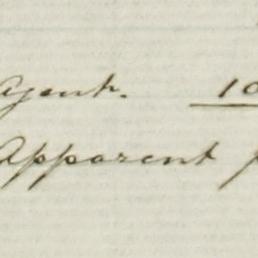 Agent. 10
Apparent p